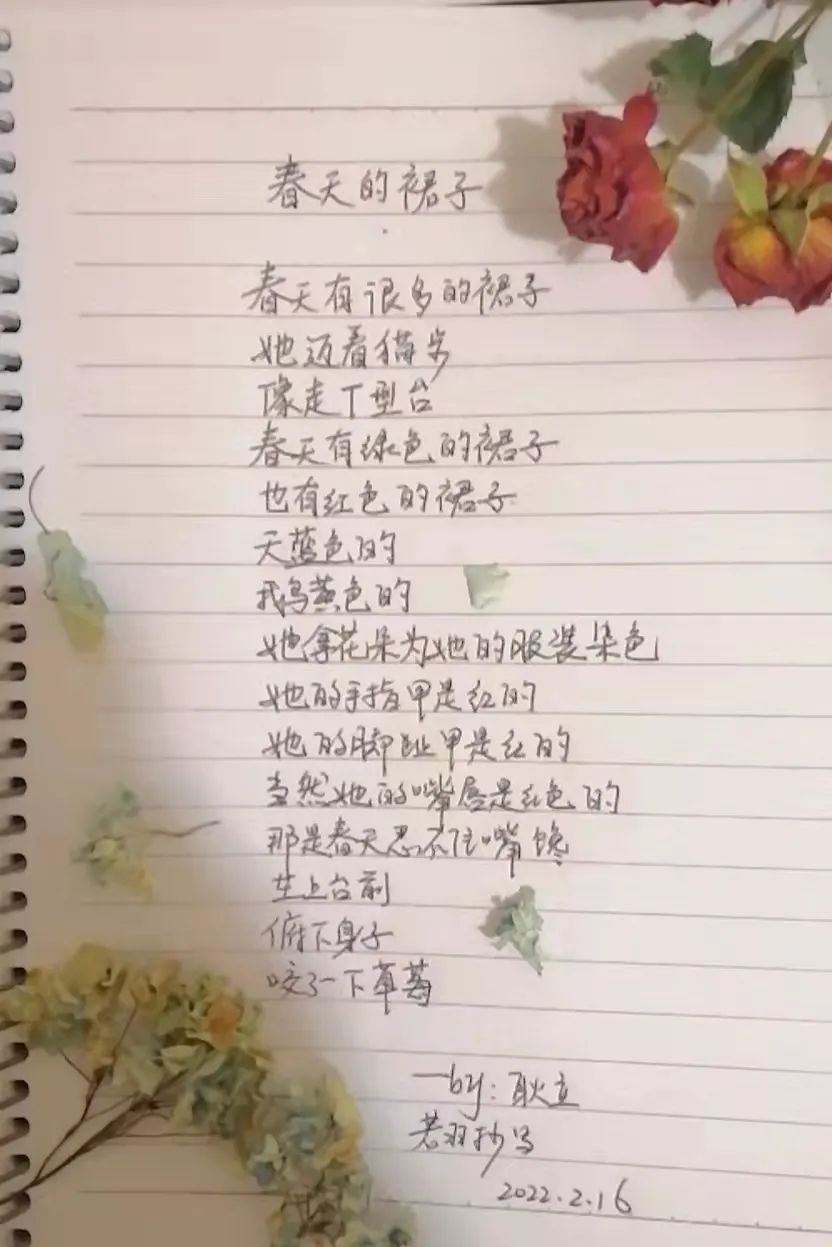 春天的裙子
春天有很多的裙子
她迈着猫步
像走T型台
春天有绿色的裙子
也有红色的裙子
天蓝色的
鹅黄色的
她拿花朵为她的服装染色
她的手指甲是红的
她的脚趾甲是红的
当然她的嘴唇是红色的
那是春天忍不住嘴馋
在上台前
俯下身子
咬了一下草莓
—by:耿立
若羽抄写
2022.2.16